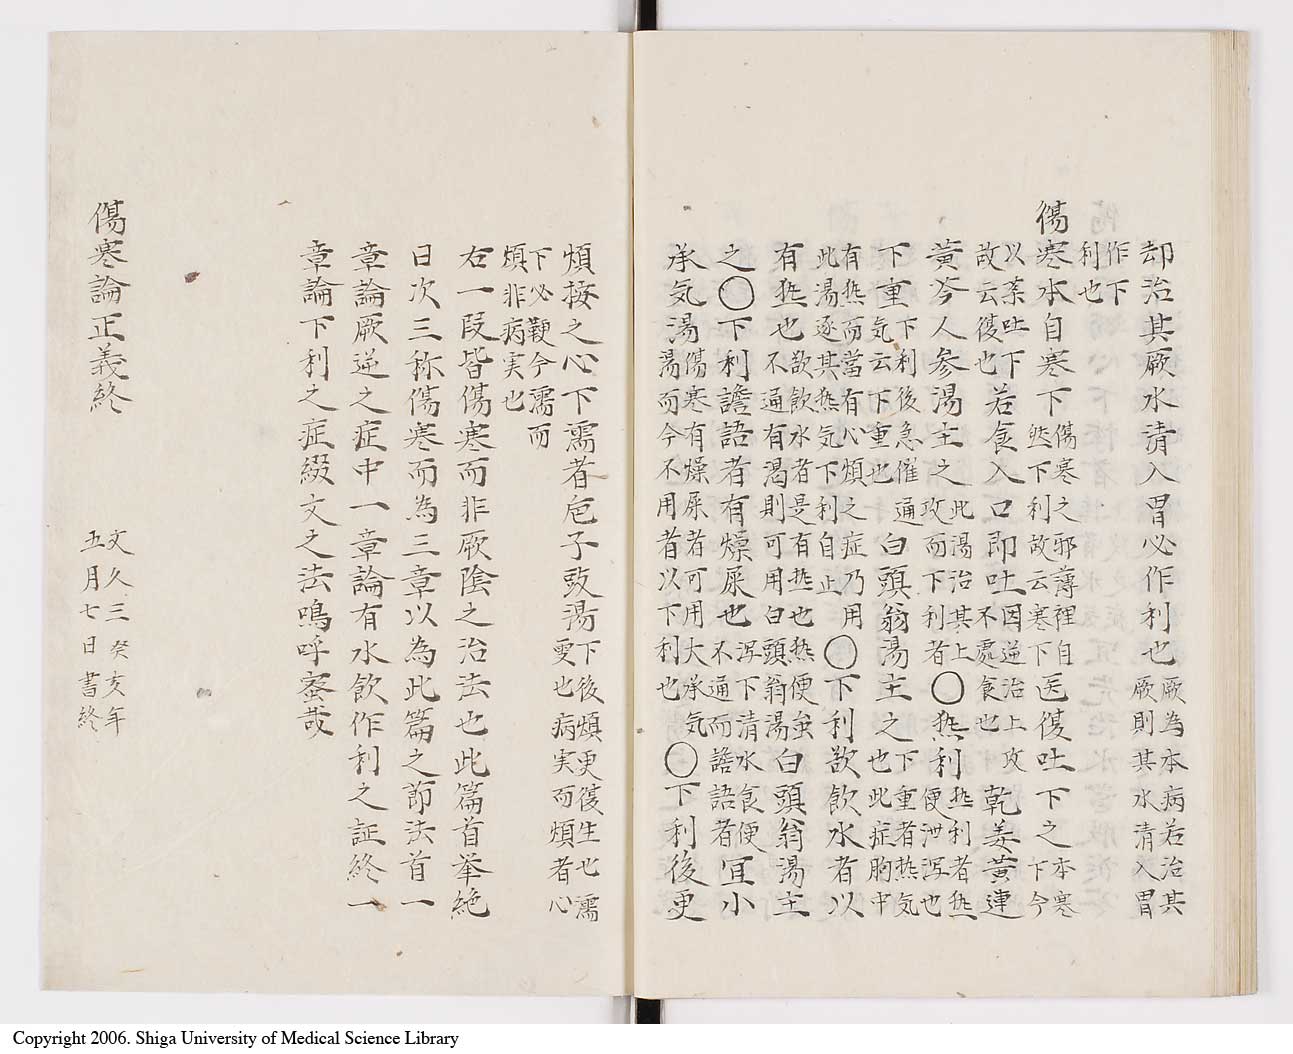 却治其厥水清入胃必作利也厥為本病若治其厥則其水清入胃
作下利也
傷寒本自寒下傷寒之邪薄裡自然下利故云寒下医復吐下之本寒下今
以薬吐下故云復也若食入口即吐因逆治上攻不處食也乾姜黄連
黄芩人参湯主之此湯治其上攻而下利者〇热利热利者热便泄泻也
下重下利後急催通気云下重也白頭翁湯主之下重者热気也此症胸中
有热而當有心煩之症乃用此湯逐其热気下利自止〇下利欲飲水者以
有热也欲飲水者是有热也热便虽不通有渇則可用白頭翁湯白頭翁湯主
之〇下利譫語者有燥屎也泻下清水食便不通而譫語者宜小
承気湯傷寒有燥屎者可用大承気湯而今不用者以下利也〇下利後更
煩按之心下濡者卮子豉湯下後煩更復生也濡更也病実而煩者心
下必鞕今濡而煩非病実也
右一段皆傷寒而非厥陰之治法也此篇首举絶
日次三称傷寒而為三章以為此篇之節法首一
章論厥逆之症中一章論有水飲作利之証終一
章論下利之症綴文之法嗚呼密哉
傷寒論正義終
文久三癸亥年
五月七日書終
Copyright 2006. Shiga University of Medical Science Library